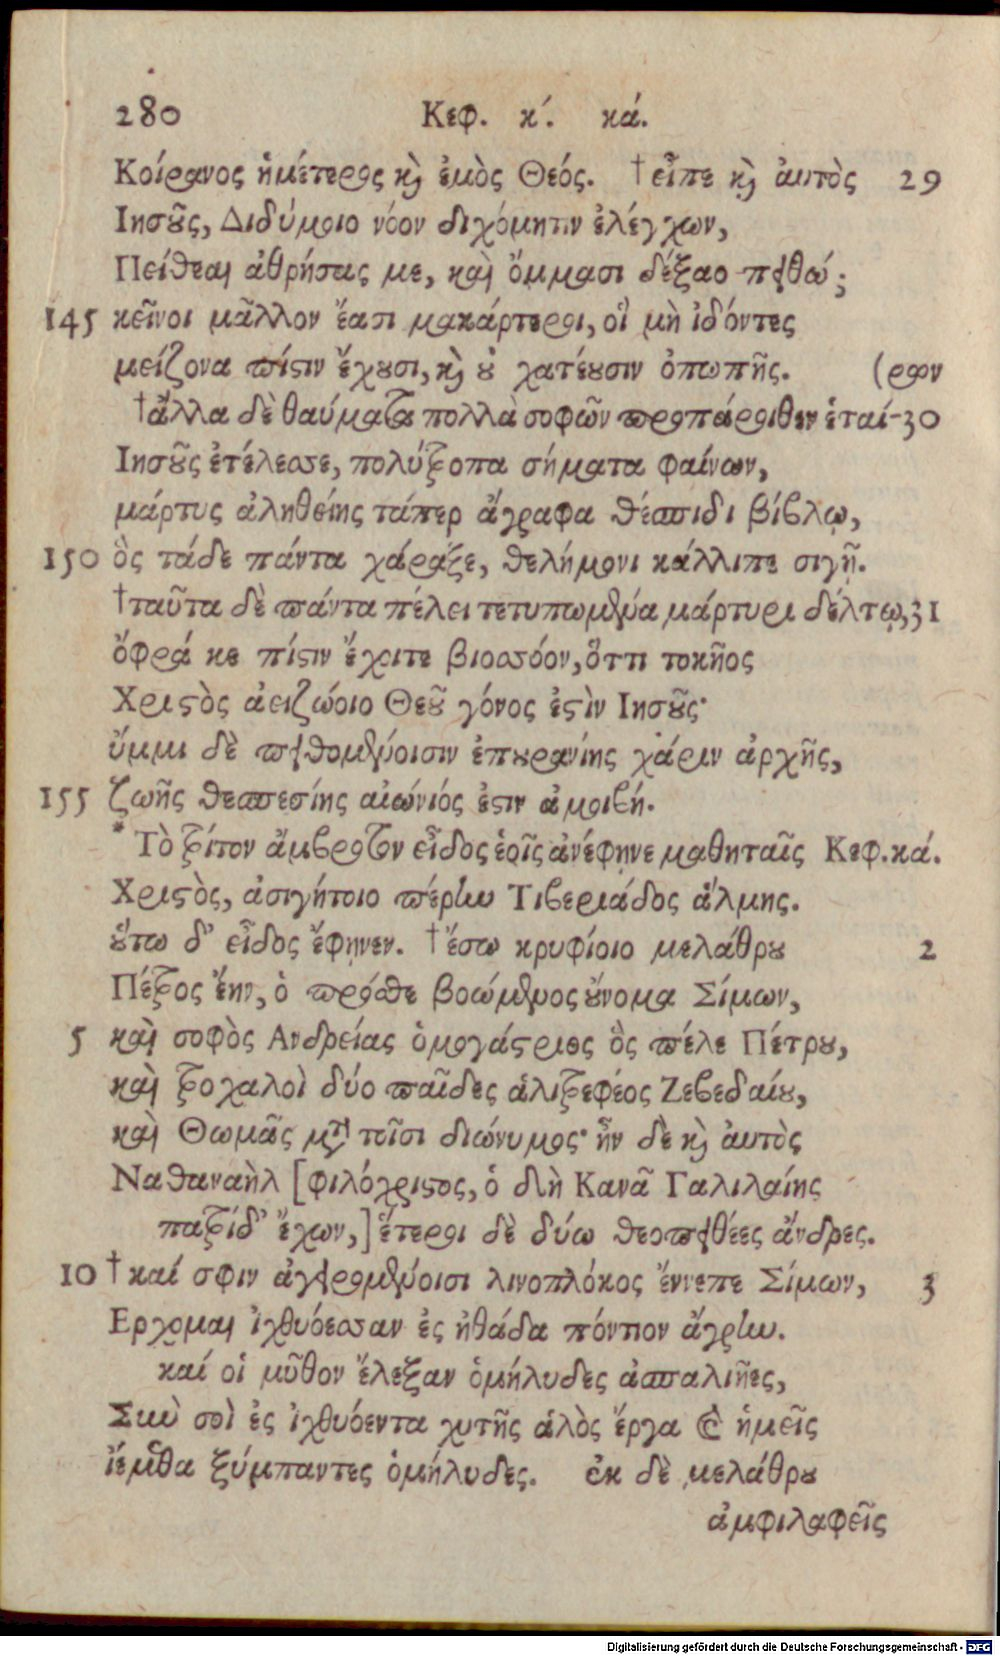 280 Κεφ. κ΄. κά.
Κοίρανος ἡμέτερος κὶ ἐμὸς Θεός. †εἶπε κὶ ἀυτὸς 29
Ιησοῦς, Διδύμοιο νόον διχόμητιν ἐλέγχων,
Πείθεαι ἀθρήσας με, καὶ ὄμμασι δέξαο πειθώ;
145 κεῖνοι μᾶλλον ἔασι μακάρτεροι, οἳ μὴ ἰδόντες
μείζονα πίστιν ἔχουσι, κὶ οὐ χατέουσιν ὀπωπῆς. (ρων
†ἄλλα δὲ θαύματα πολλὰ σοφῶν προπάροιθεν ἑταί-30
Ιησοῦς ἐτέλεσσε, πολύτροπα σήματα φαίνων,
μάρτυς ἀληθείης τάπερ ἄγραφα θέσπιδι βίβλῳ,
150 ὃς τάδε πάντα χάραξε, θελήμονι κάλλιπε σιγῇ.
†ταῦτα δὲ πάντα πέλει τετυπωμένα μάρτυρι δέλτῳ,31
ὄφρά κε πίστιν ἔχοιτε βιοσσόον, ὅττι τοκῆος
Χριστὸς ἀειζώοιο Θεοῦ γόνος ἐστὶν Ιησοῦς·
ὔμμι δὲ πειθομένοισιν ἐπουρανίης χάριν ἀρχῆς,
155 ζωῆς θεσπεσίης αἰώνιός ἐστιν ἀμοιβή.
* Τὸ τρίτον ἄμβροτον εἶδος ἑοῖς ἀνέφηνε μαθηταῖς Κεφ.κά.
Χριστὸς, ἀσιγήτοιο πέρην Τιβεριάδος ἅλμης.
οὕτω δ' εἶδος ἔφηνεν. †ἔσω κρυφίοιο μελάθρου 2
Πέτρος ἔην, ὁ πρόσθε βοώμενος οὔνομα Σίμων,
5 καὶ σοφὸς Ανδρείας ὁμογάστριος ὃς πέλε Πέτρου,
καὶ τροχαλοὶ δύο παῖδες ἁλιτρεφέος Ζεβεδαίου,
καὶ Θωμᾶς μετὰ τοῖσι διώνυμος· ἦν δὲ κὶ ἀυτὸς
Ναθαναὴλ [φιλόχριστος, ὁ δὴ Κανᾶ Γαλιλαίης
πατρίδ' ἔχων,] ἕτεροι δὲ δύω θεοπειθέες ἄνδρες.
10 †καί σφιν ἀγειρομένοισι λινοπλόκος ἔννεπε Σίμων, 3
Ερχομαι ἰχθυόεσσαν ἐς ἠθάδα πόντιον ἄγρην.
καί οἱ μῦθον ἔλεξαν ὁμήλυδες ἀσπαλιῆες,
Σὺν σοὶ ἐς ἰχθυόεντα χυτῆς ἁλὸς ἔργα καὶ ἡμεῖς
ἵεμεσθα ξύμπαντες ὁμήλυδες. ἐκ δὲ μελάθρου
ἀμφιλαφεῖς
Digitalisierung gefördert durch die Deutsche Forschungsgemeinschaft - DFG